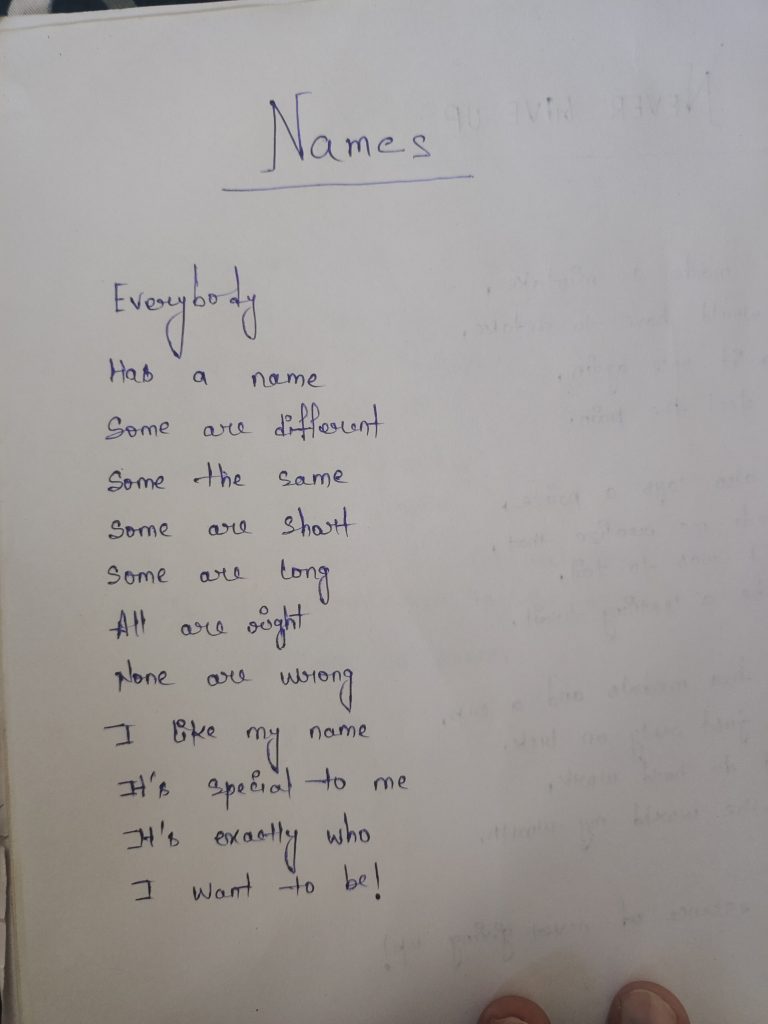 Names
Everybody
Has a name
Some are different
Some the same
Some are short
Some are long
All are right
None are wrong
I like my name
It's special to me
It's exactly who
I want to be!